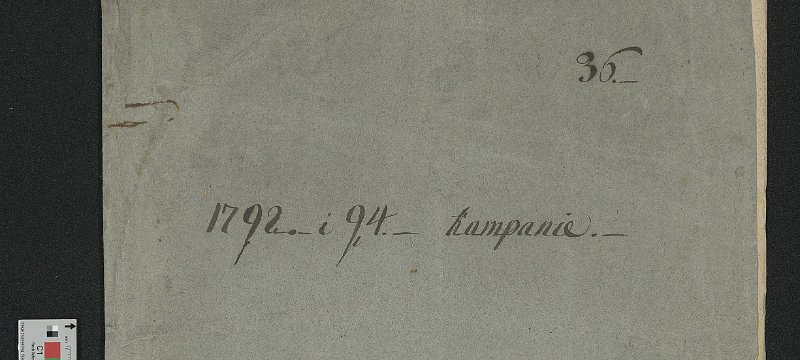 36.—
1792.— i 94.— Kampanie.—
C1